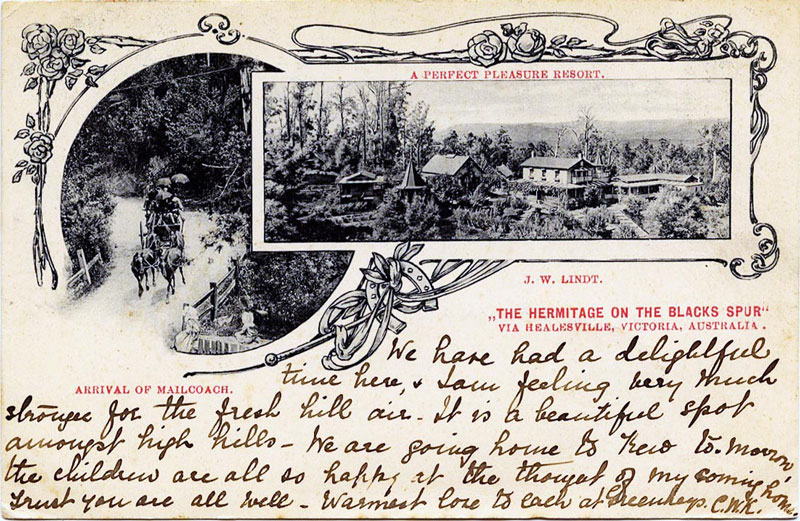 A PERFECT PLEASURE RESORT.
J. W. LINDT.
„THE HERMITAGE ON THE BLACKS SPUR“
VIA HEALESVILLE, VICTORIA, AUSTRALIA.
ARRIVAL OF MAILCOACH.
We have had a delightful
time here, & I am feeling very much
stronger for the fresh hill air - It is a beautiful spot
amongst high hills - We are going home to Kew to-morrow,
the children are all so happy at the thought of my coming home.
Trust you are all well - Warmest love to each at Greenhays. C.W.R.